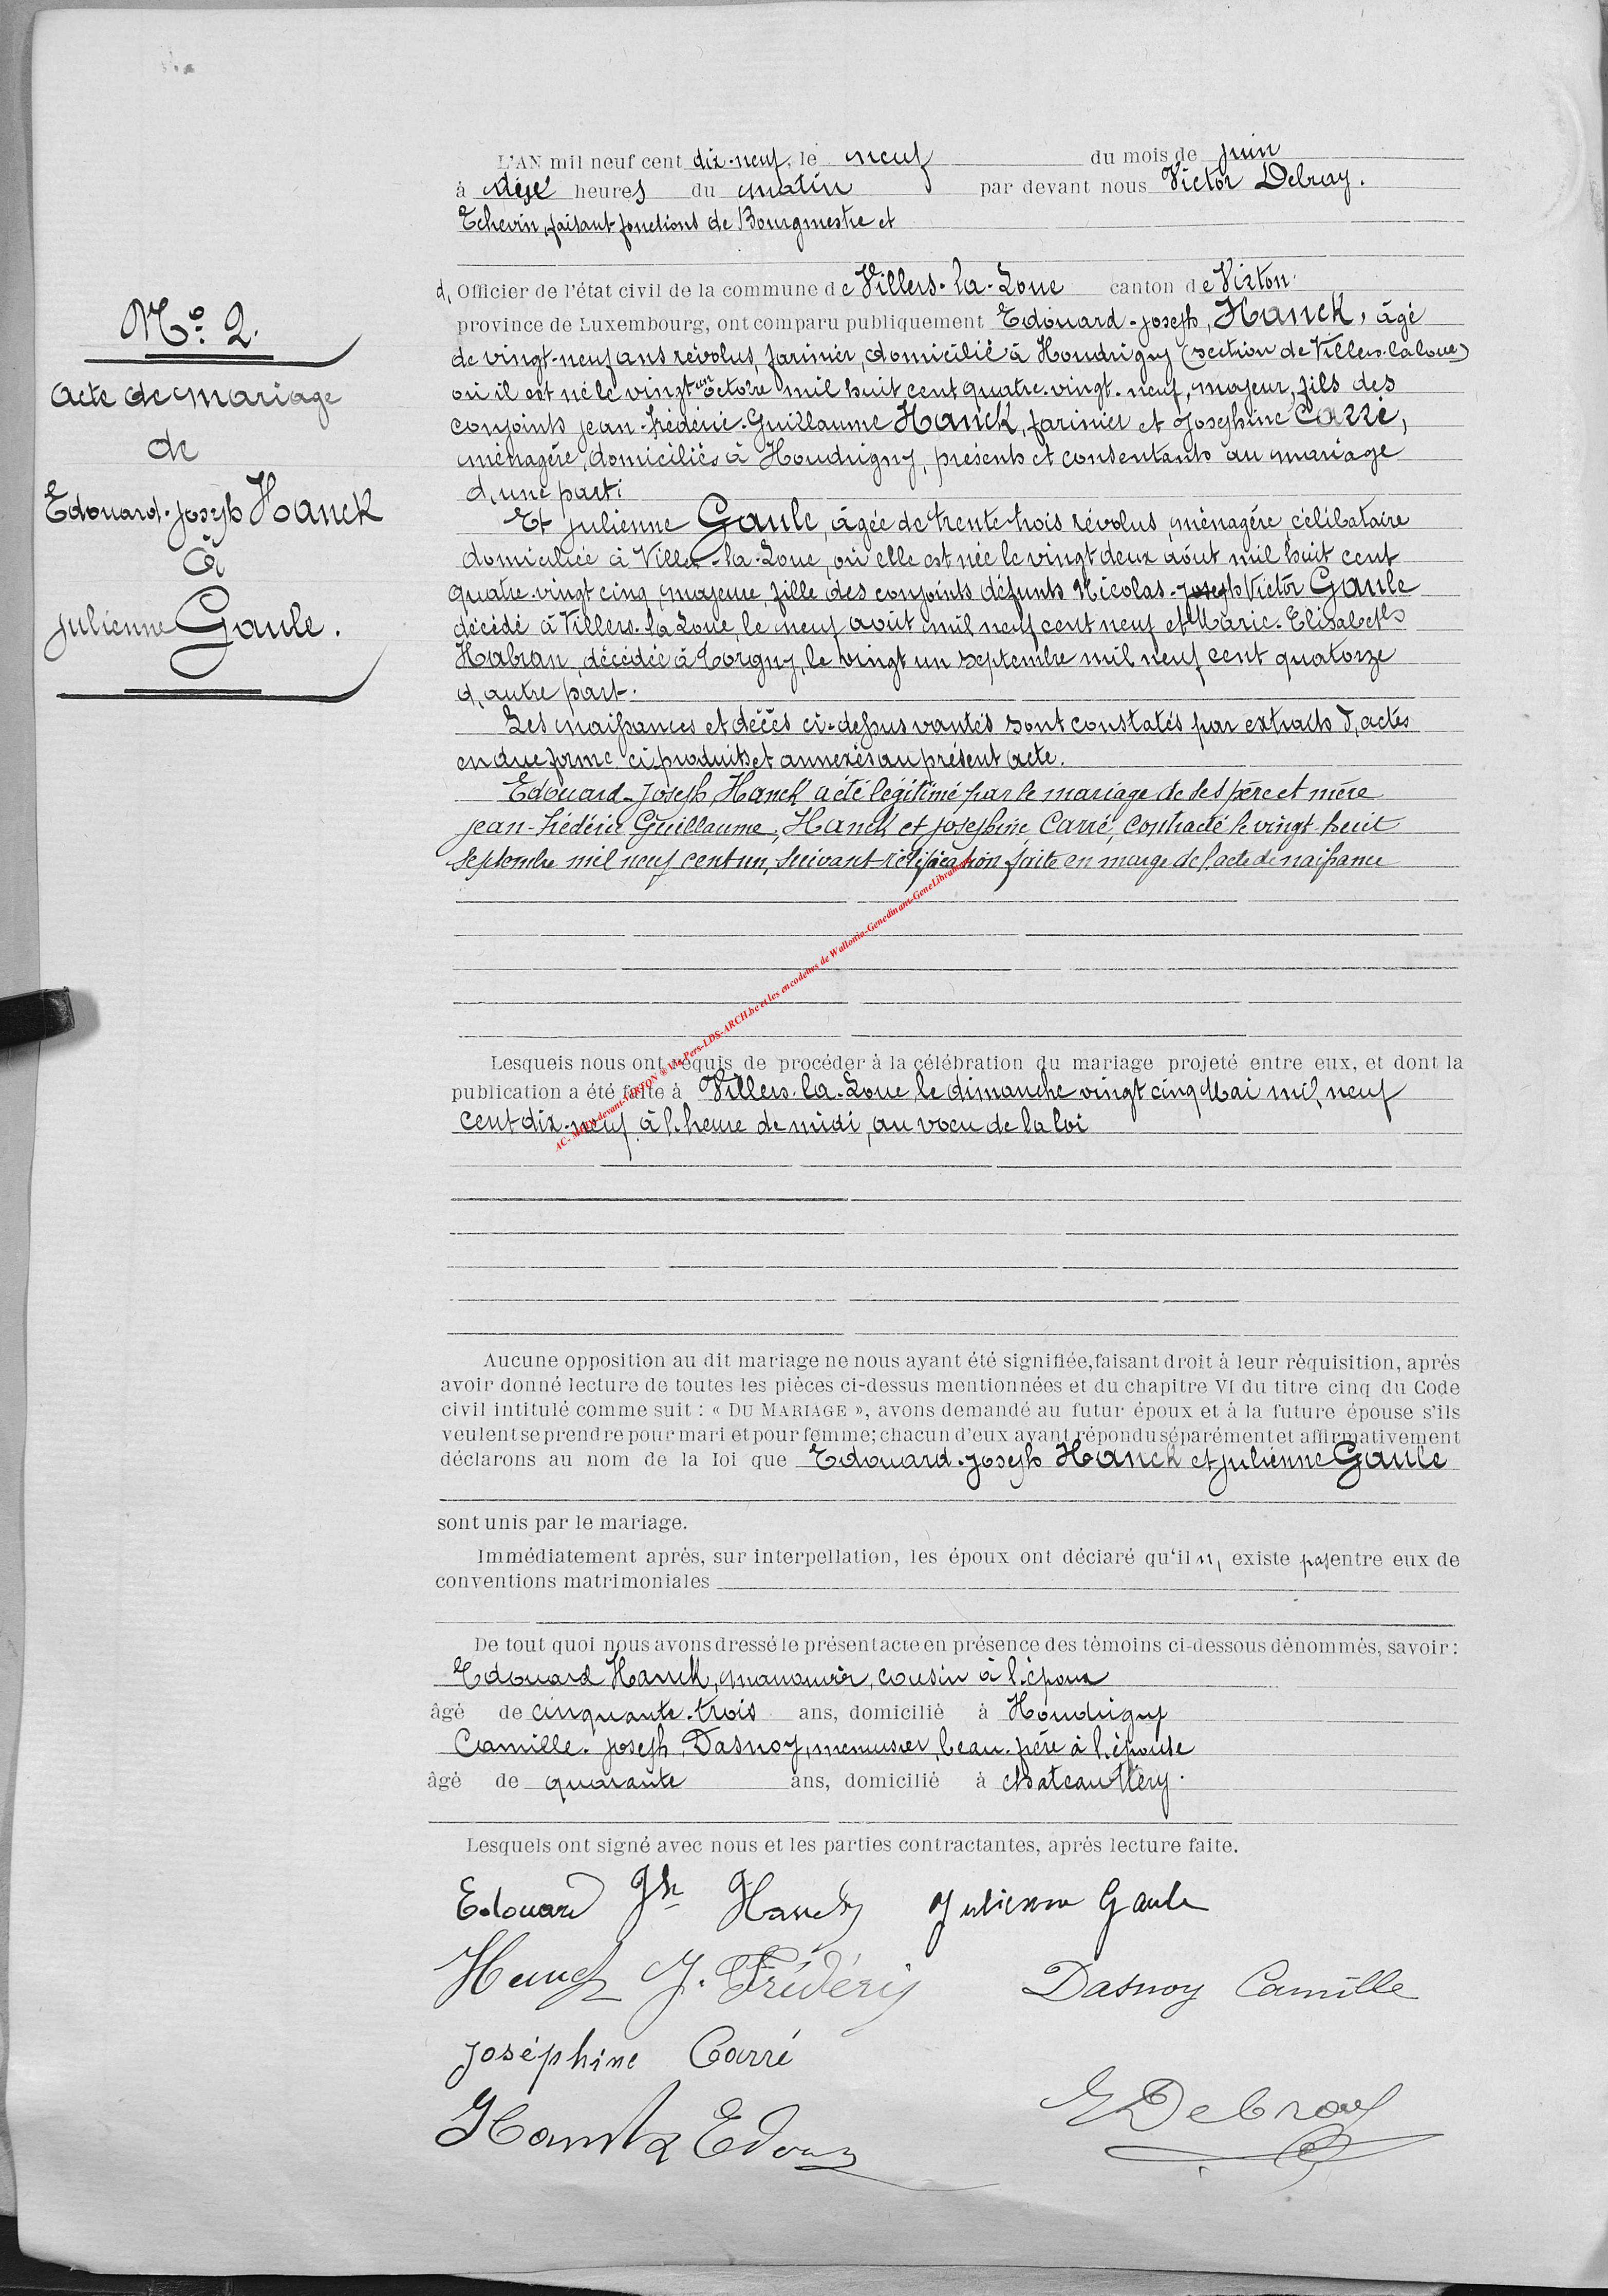 L'AN mil neuf cent dix-neuf, le neuf du mois de juin
à heures du matin par devant nous Victor Debray.
Echevin, faisant fonctions de Bourgmestre et
d, Officier de l'état civil de la commune de Villers-la-Loue canton de Virton
province de Luxembourg, ont comparu publiquement Edouard-Joseph, Hanck, âgé
de vingt-neuf ans révolus, farinier, domicilié à Houdrigny (section de Villers-la loue)
où il est né le vingt un octobre mil huit cent quatre-vingt-neuf, majeur, fils des
conjoints jean-frédéric-Guillaume Hanck, farinier et Josephine Carré,
ménagère, domiciliés à Houdrigny, présents et consentants au mariage
d, une part;
Et julienne Gaule, âgée de trente trois révolus, ménagère célibataire
domiciliée à Villers-la-Loue, où elle est née le vingt deux aôut mil huit cent
quatre-vingt cinq, majeure, fille des conjoints défunts Nicolas-Joseph Victor Gaule
décédé à Villers-la Loue, le neuf aôut mil neuf cent neuf et Marie-Elisabeth
Habran, décédée à Torgny, le vingt un septembre mil neuf cent quatorze
d, autre part.
Les naissances et décès ci-dessus vantés sont constatés par extraits d, actes
en due forme ci produits et annexés au présent acte.
Edouard-Joseph Hanck a été légitimé par le mariage de ses père et mère
jean-frédéric Guillaume, Hanck et josephine Carré, contracté le vingt-huit
septembre mil neuf cent un, suivant rectification faite en marge de l'acte de naissance
Lesquels nous ont requis de procéder à la célébration du mariage projeté entre eux, et dont la
publication a été faite à Villers-la-Loue le dimanche vingt cinq Mai mil neuf
cent dix-neuf, à l'heure de midi, au voeu de la loi
Aucune opposition au dit mariage ne nous ayant été signifiée, faisant droit à leur réquisition, après
avoir donné lecture de toutes les pièces ci-dessus mentionnées et du chapitre VI du titre cinq du Code
civil intitulé comme suit : « DU MARIAGE », avons demandé au futur époux et à la future épouse s'ils
veulent se prendre pour mari et pour femme; chacun d'eux ayant répondu séparément et affirmativement
déclarons au nom de la loi que Edouard-Joseph Hanck et julienne Gaule
sont unis par le mariage.
Immédiatement après, sur interpellation, les époux ont déclaré qu'il n, existe pas entre eux de
conventions matrimoniales
De tout quoi nous avons dressé le présent acte en présence des témoins ci-dessous dénommés, savoir :
Edouard Hanck, manouvrier, cousin à l'époux
âgé de cinquante-trois ans, domicilié à Houdrigny
Camille-Joseph, Dasnoy, menuisier, beau-frère à l'épouse
âgé de quarante ans, domicilié à
Lesquels ont signé avec nous et les parties contractantes, après lecture faite.
Edouard Jh Hanck Julienne Gaule
Hanck J. Frédéric Dasnoy Camille
Joséphine Carré
Hanck Edouard Debray
No. 2.
Acte de mariage
de
Edouard-Joseph Hanck
à
julienne Gaule.